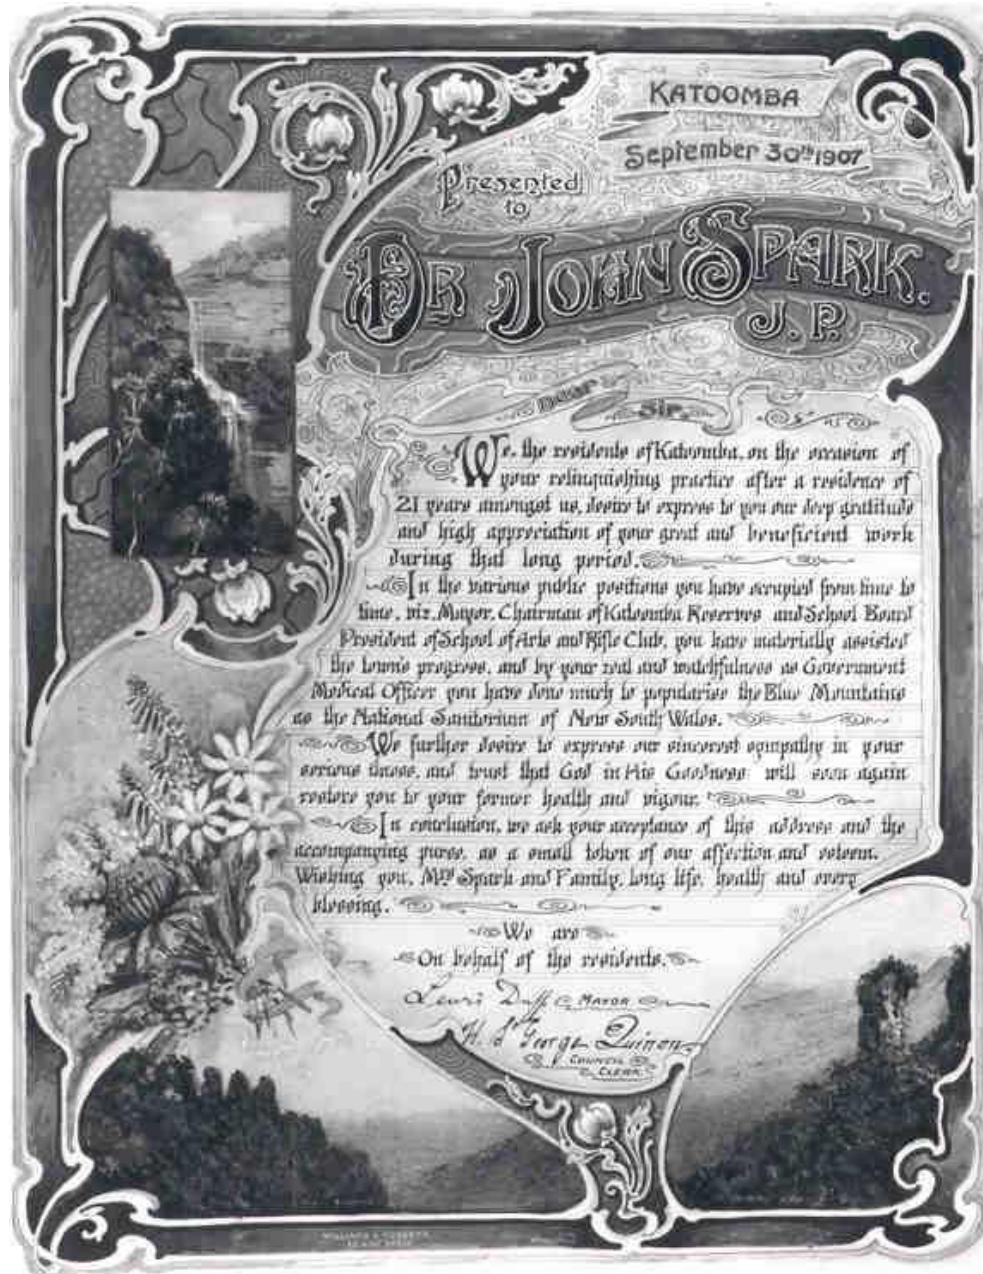 KATOOMBA
September 30th 1907
Presented
to
DR JOHN SPARK.
J. P.
Dear
Sir,
We, the residents of Katoomba, on the occasion of
your relinquishing practice after a residence of
21 years amongst us, desire to express to you our deep gratitude
and high appreciation of your great and beneficient work
during that long period.
In the various public positions you have occupied from time to
time, viz. Mayor, Chairman of Katoomba Reserves and School Board
President of School of Arts and Rifle Club, you have materially assisted
the town's progress, and by your zeal and watchfulness as Government
Medical Officer you have done much to popularise the Blue Mountains
as the National Sanitorium of New South Wales.
We further desire to express our sincerest sympathy in your
serious illness, and trust that God in His Goodness will soon again
restore you to your former health and vigour.
In conclusion, we ask your acceptance of this address and the
accompanying purse, as a small token of our affection and esteem.
Wishing you, Mrs Spark and Family, long life, health and every
blessing.
We are
On behalf of the residents.
Lewis Duff MAYOR
H. St George Quinon
COUNCIL
CLERK